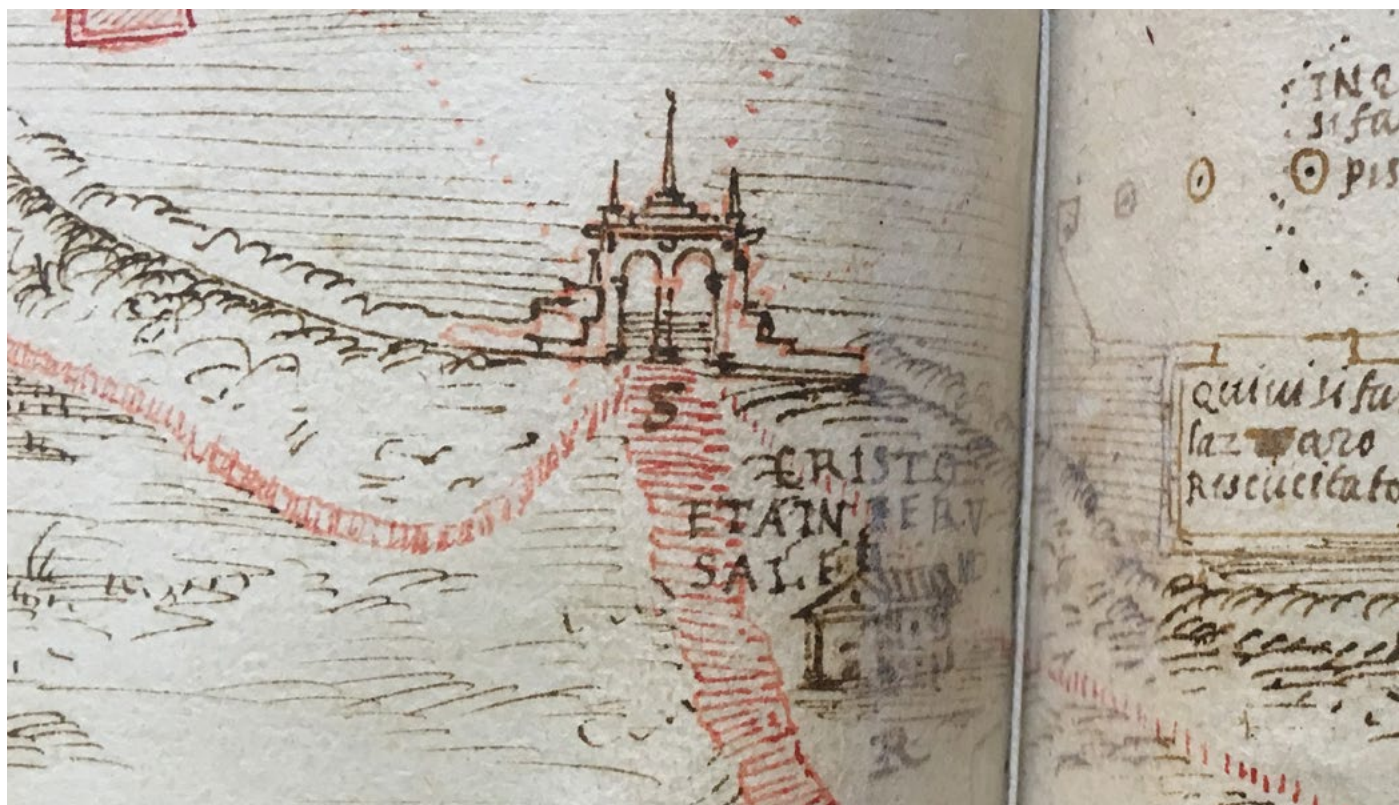 S
CRISTO
ETA IN IERU
SALE
R
si fa
PIS
QUIVI SI fa
laz aro
Rescucitato